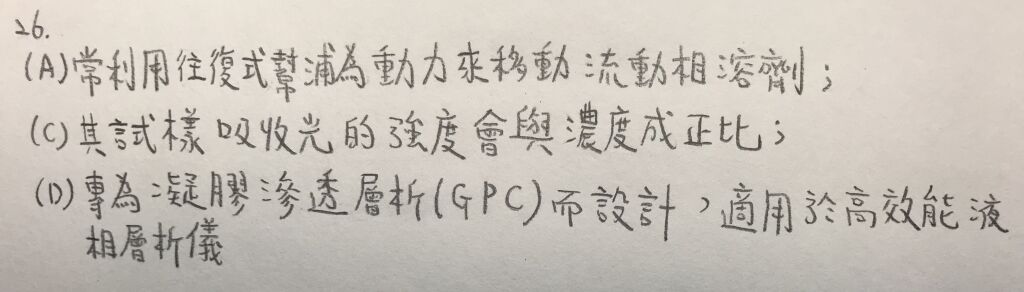 26.
(A)常利用往復式幫浦為動力來移動流動相溶劑；
(C)其試樣吸收光的強度會與濃度成正比；
(D)專為凝膠滲透層析(GPC)而設計，適用於高效能液
相層析儀